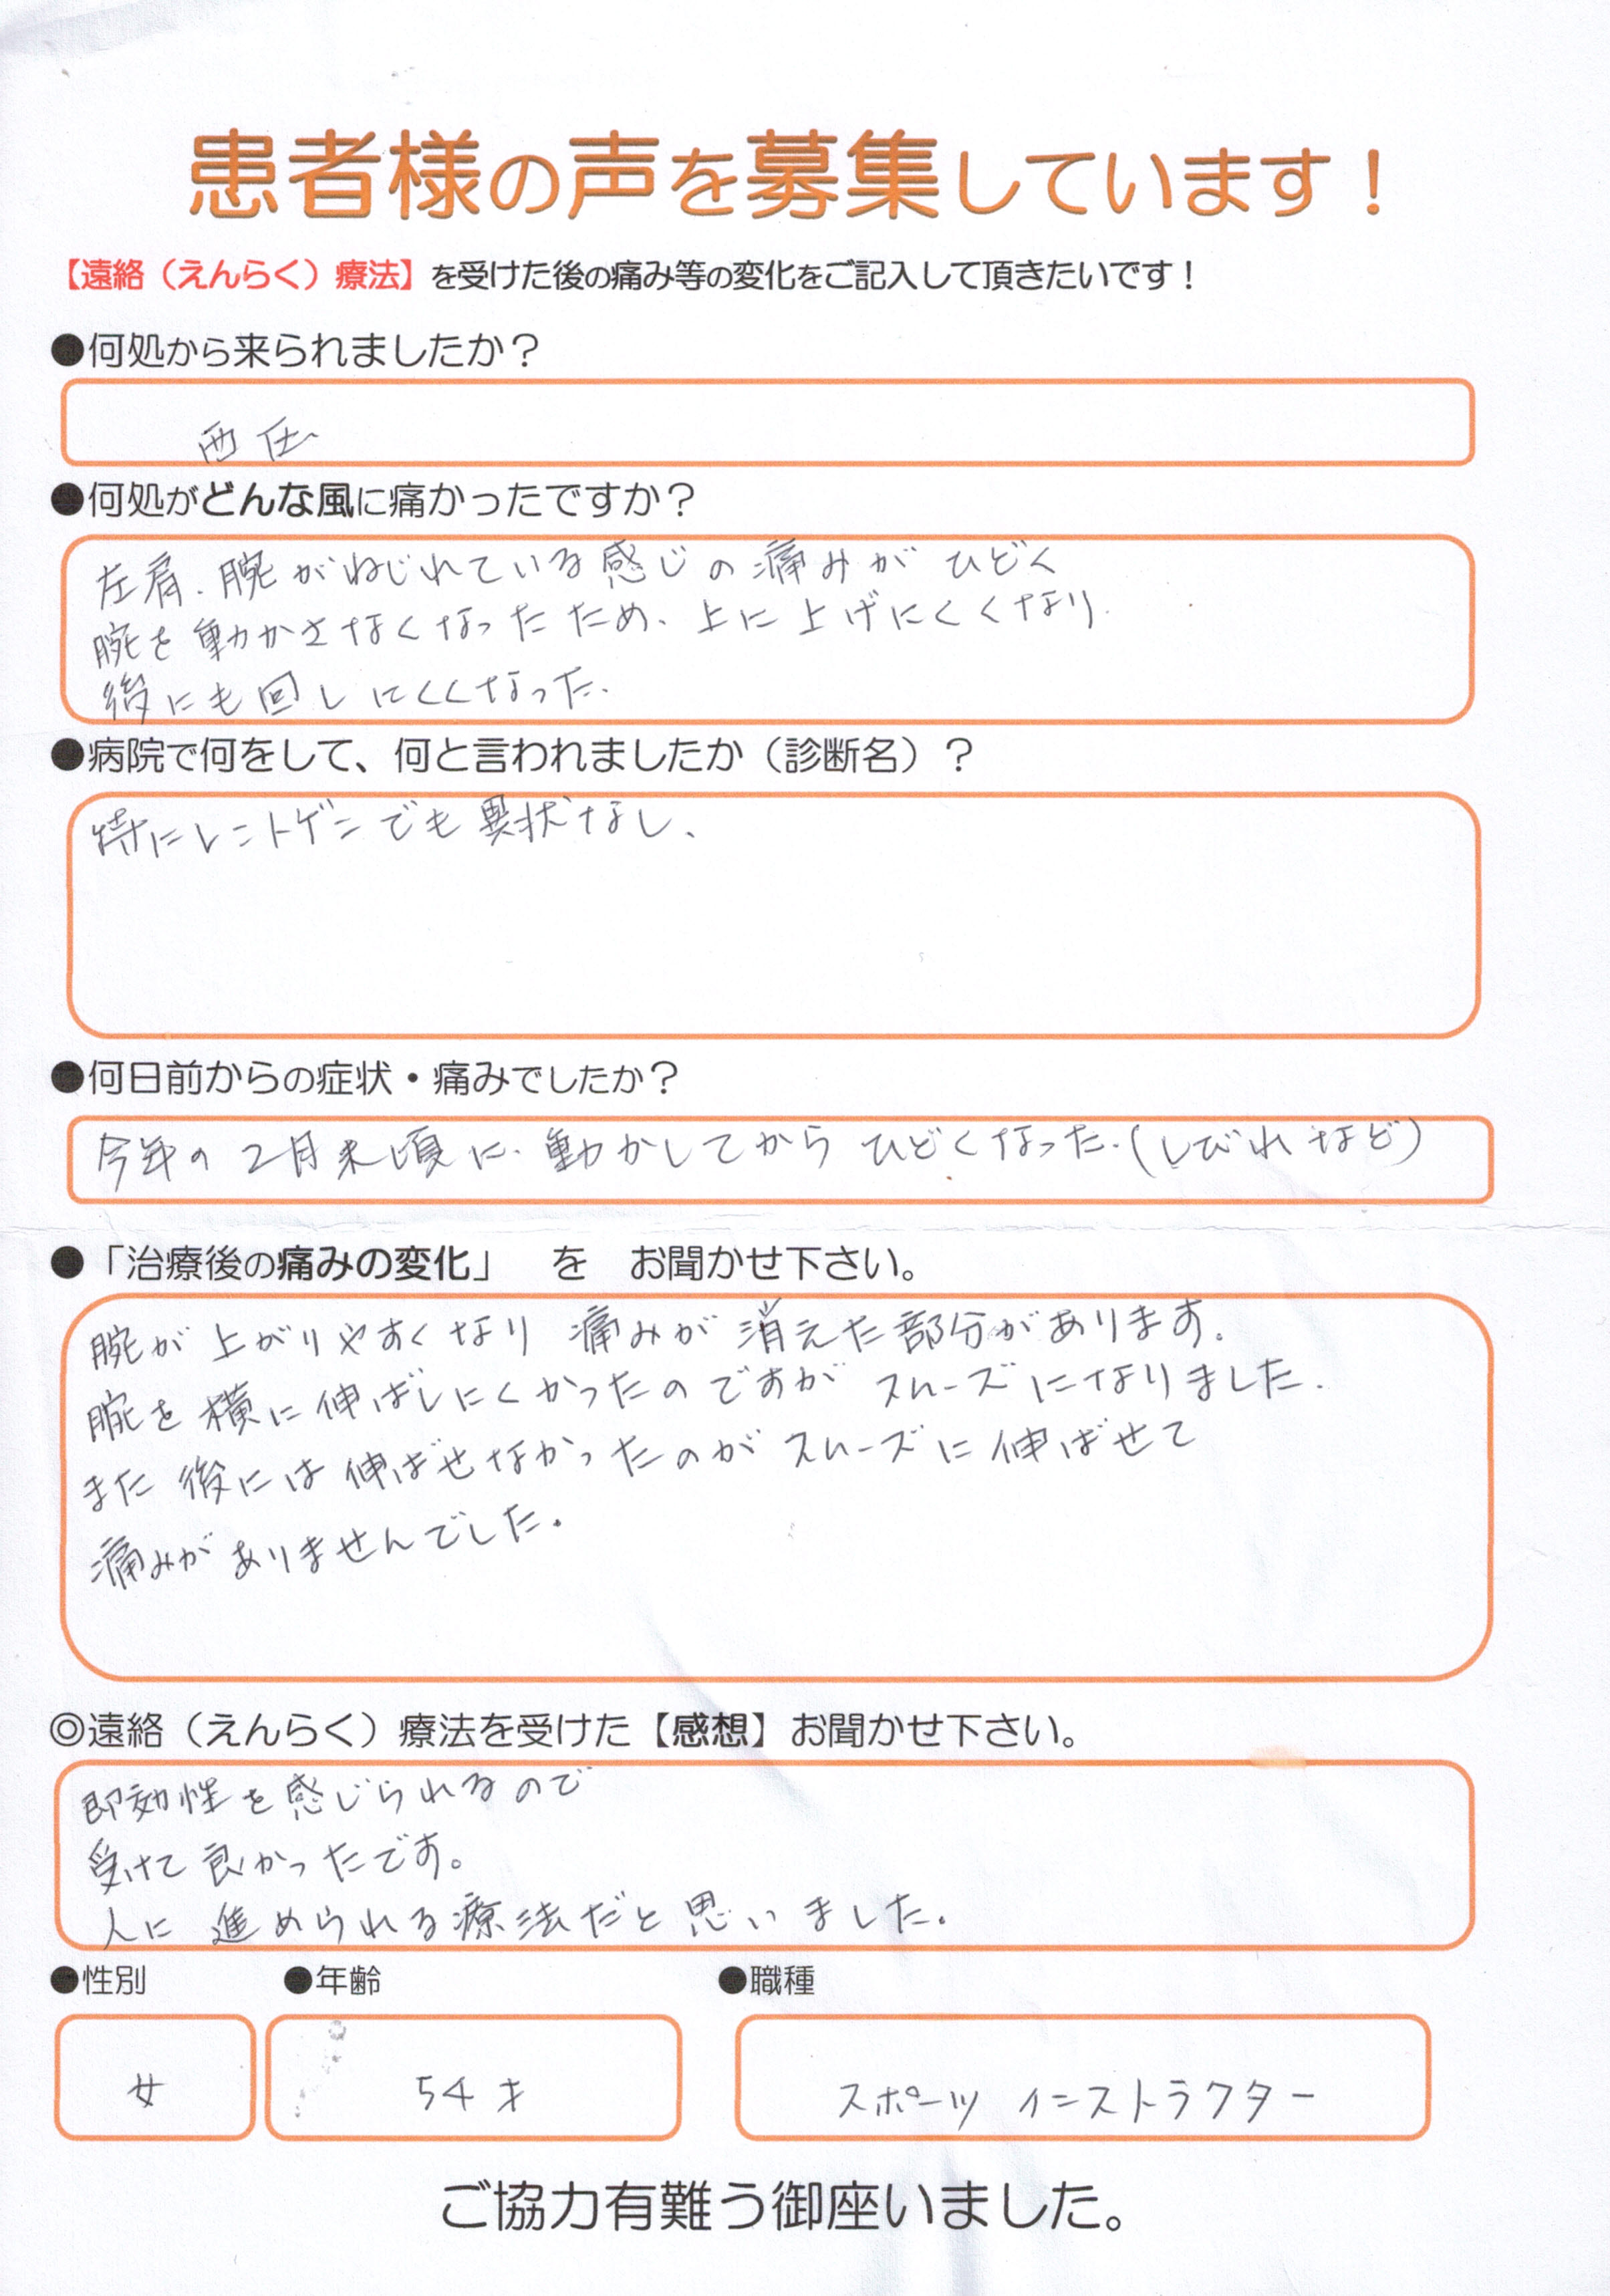 患者様の声を募集しています！
【遠絡（えんらく）療法】を受けた後の痛み等の変化をご記入して頂きたいです！
●何処から来られましたか？
西任
●何処がどんな風に痛かったですか？
左肩、腕がねじれている感じの痛みがひどく
腕を動かさなくなったため、上に上げにくくなり、
後にも回しにくくなった。
●病院で何をして、何と言われましたか（診断名）？
特にレントゲンでも異状なし、
●何日前からの症状・痛みでしたか？
今年の2月末頃に、動かしてからひどくなった。（しびれなど）
●「治療後の痛みの変化」 を お聞かせ下さい。
腕が上がりやすくなり 痛みが消えた部分があります。
腕を横に伸ばしにくかったのですがスムーズになりました。
また後には伸ばせなかったのがスムーズに伸ばせて
痛みがありませんでした。
◎遠絡（えんらく）療法を受けた【感想】お聞かせ下さい。
即効性を感じられるので
受けて良かったです。
人に進められる療法だと思いました。
●性別 ●年齢 ●職種
女 54才 スポーツインストラクター
ご協力有難う御座いました。